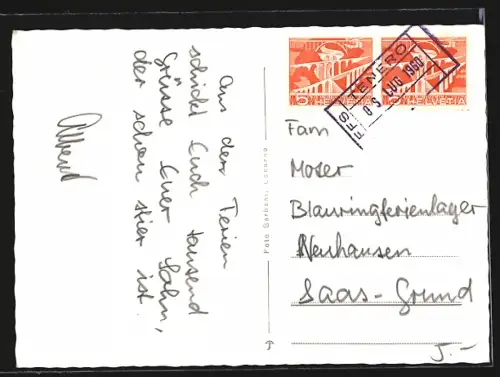 Aus den Ferien
schickt Euch tausend
Grüsse Euer Sohn,
der schon stier ist.
Albert
Foto Garbani, Locarno
5 HELVETIA
5 HELVETIA
FFS TENERO
AUG 1960
Fam
Moser
Blauringferienlager
Neuhausen
Saas-Grund
5.-